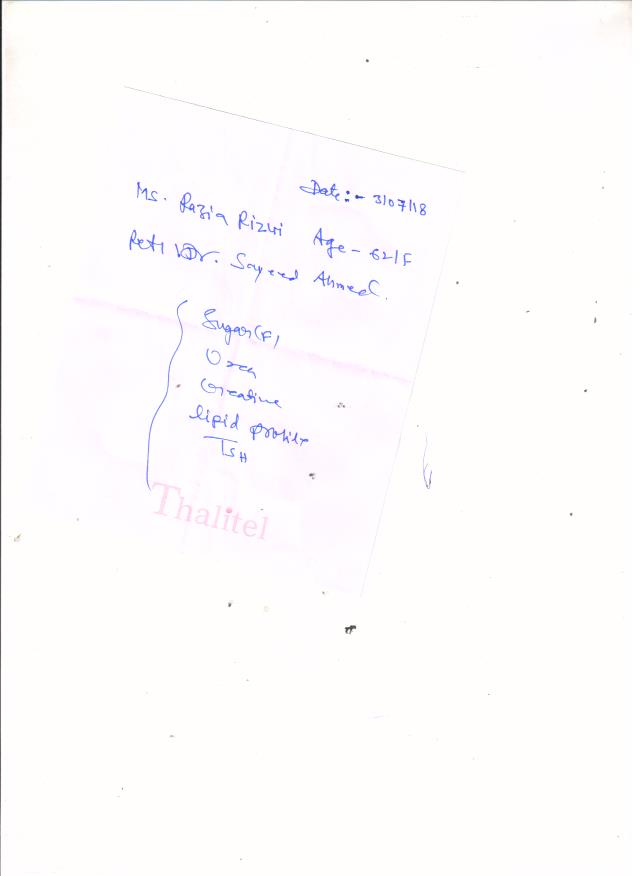 Date:- 3/07/18
Ms. Razia Rizwi Age - 62/F
Ref / Dr. Sayeed Ahmed.
Sugar (F)
Urea
Creatine
lipid profile
TSH
Thalitel